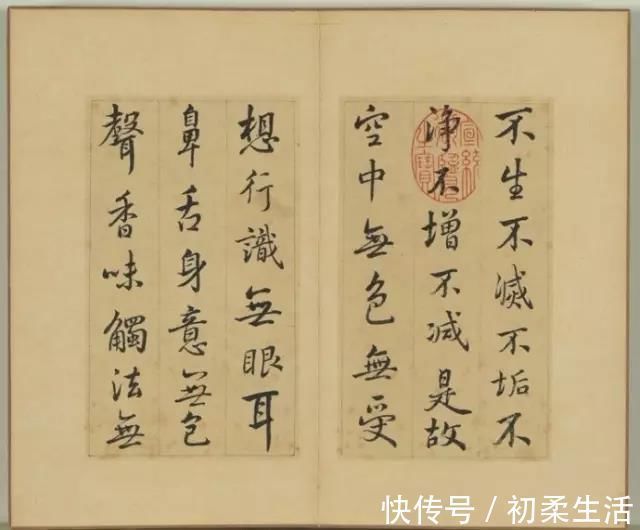 不生不滅不垢不
淨不增不减是故
空中無色無受
想行識無眼耳
鼻舌身意無色
聲香味觸法無
宣統御覽之寶
快传号 / 初柔生活